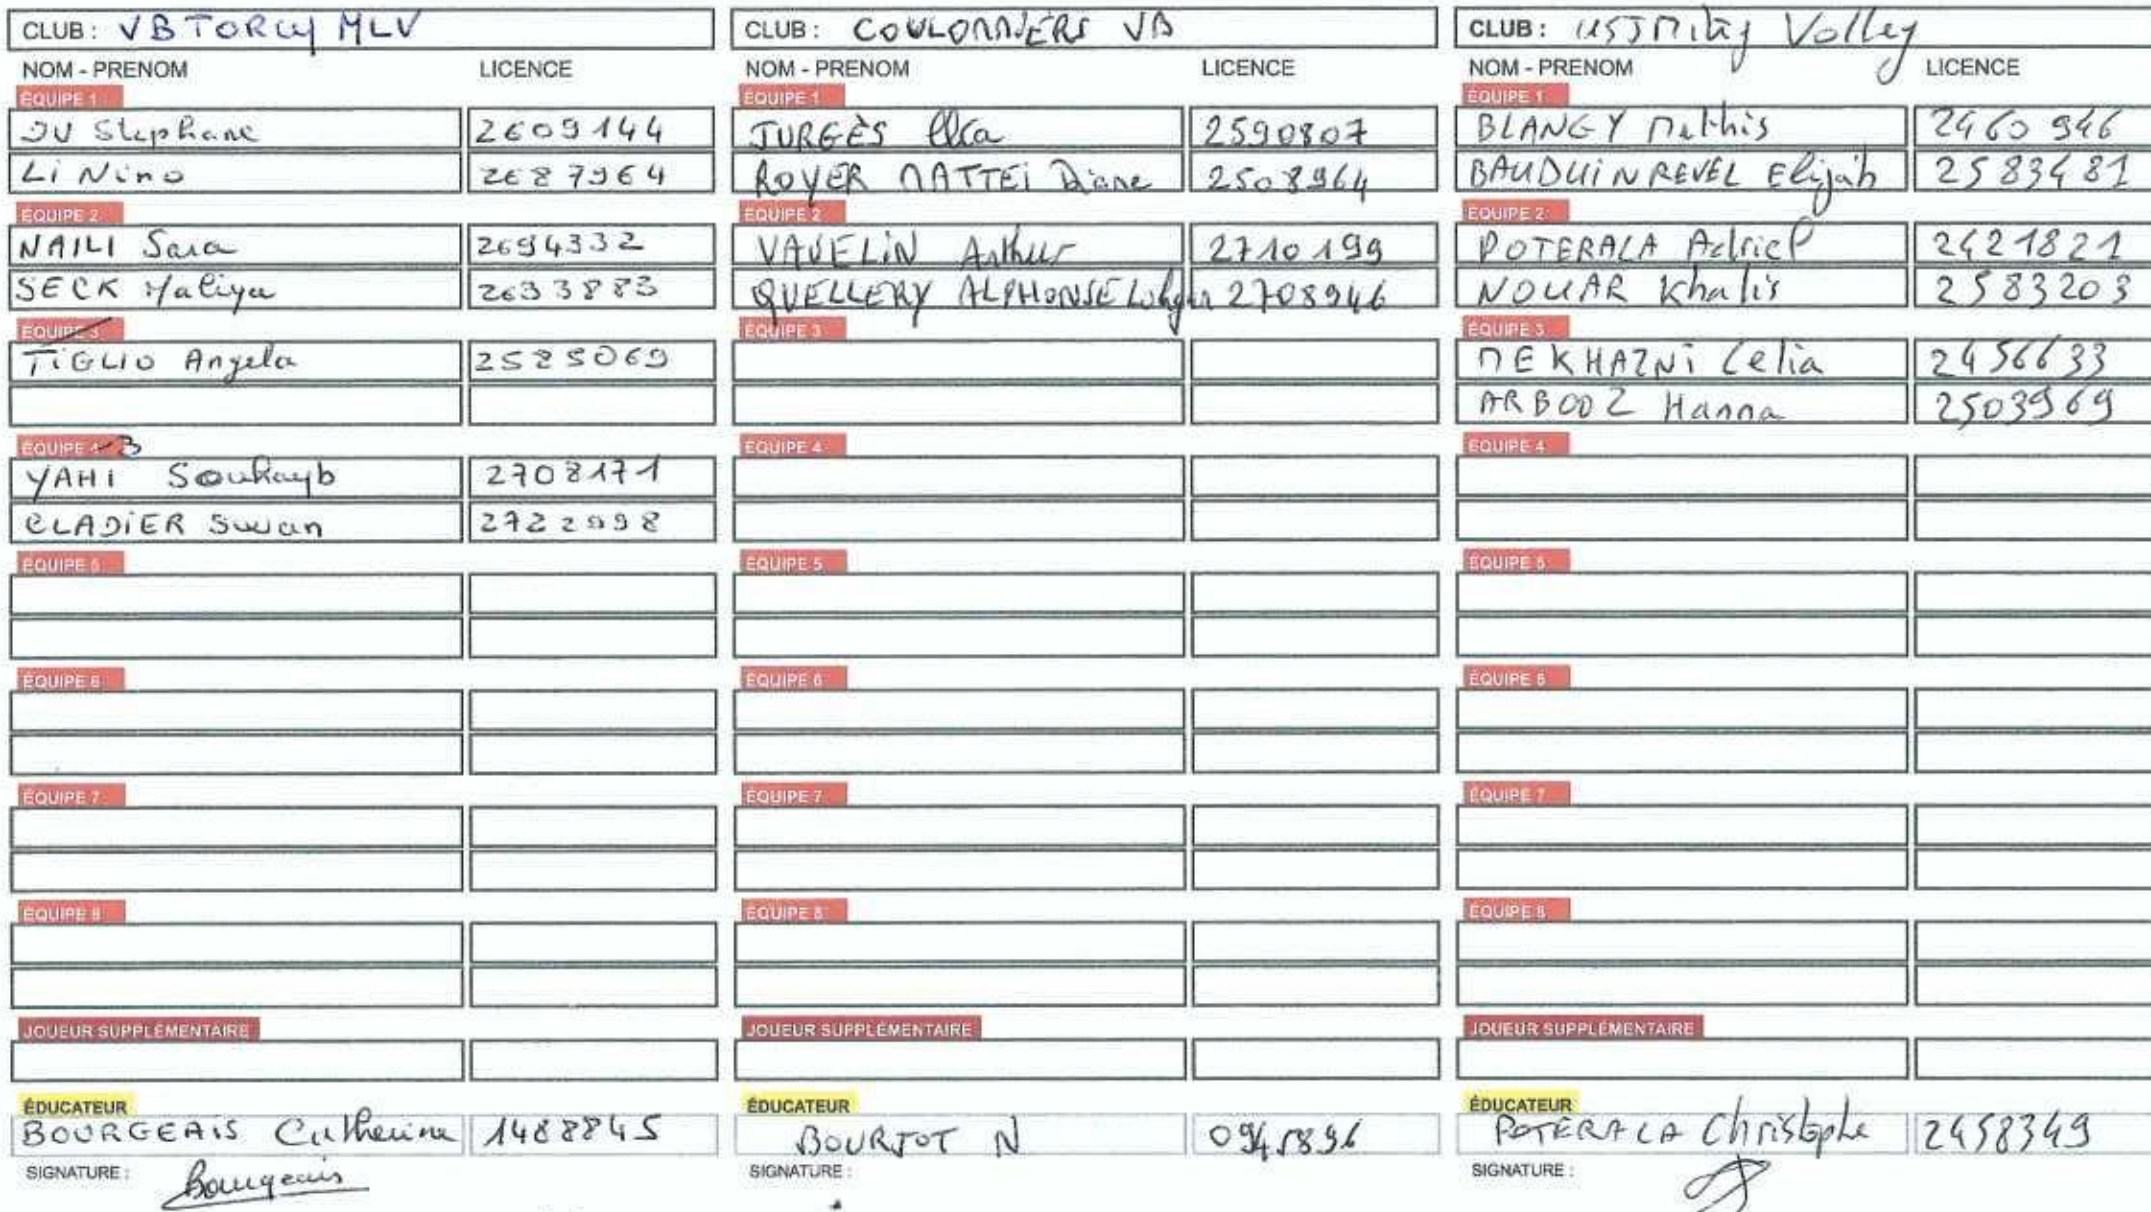 CLUB : VB TORCY MLV
NOM - PRENOM LICENCE
ÉQUIPE 1
JU Stephane 2609144
Li Nino 2687964
ÉQUIPE 2
NAILI Sara 2694332
SECK Maliya 2633883
ÉQUIPE 3
TIGLIO Angela 2585069
ÉQUIPE 4 3
YAHI Souhayb 2708171
CLADIER Swan
ÉQUIPE 5
ÉQUIPE 6
ÉQUIPE 7
ÉQUIPE 8
JOUEUR SUPPLÉMENTAIRE
ÉDUCATEUR
BOURGEAIS Catherine 1488845
SIGNATURE : Bourgeais
CLUB : COULOMMIERS VB
NOM - PRENOM LICENCE
ÉQUIPE 1
JURGÈS 2590807
ROYER MATTEI Diane 2508964
ÉQUIPE 2
VAUELIN Arthur 2710199
QUELLERY ALPHONSE 2708946
ÉQUIPE 3
ÉQUIPE 4
ÉQUIPE 5
ÉQUIPE 6
ÉQUIPE 7
ÉQUIPE 8
JOUEUR SUPPLÉMENTAIRE
ÉDUCATEUR
BOURTOT N 0945896
SIGNATURE :
CLUB : USJMitry Volley
NOM - PRENOM LICENCE
ÉQUIPE 1
BLANGY Mathis 2460946
BAUDUIN REVEL Elijah 2583481
ÉQUIPE 2
POTERALA Adriel 2421821
NOUAR Khalis 2583203
ÉQUIPE 3
MEKHAZNI Celia 2456633
ARBOOZ Hanna 2503969
ÉQUIPE 4
ÉQUIPE 5
ÉQUIPE 6
ÉQUIPE 7
ÉQUIPE 8
JOUEUR SUPPLÉMENTAIRE
ÉDUCATEUR
POTERALA Christophe 2458349
SIGNATURE :